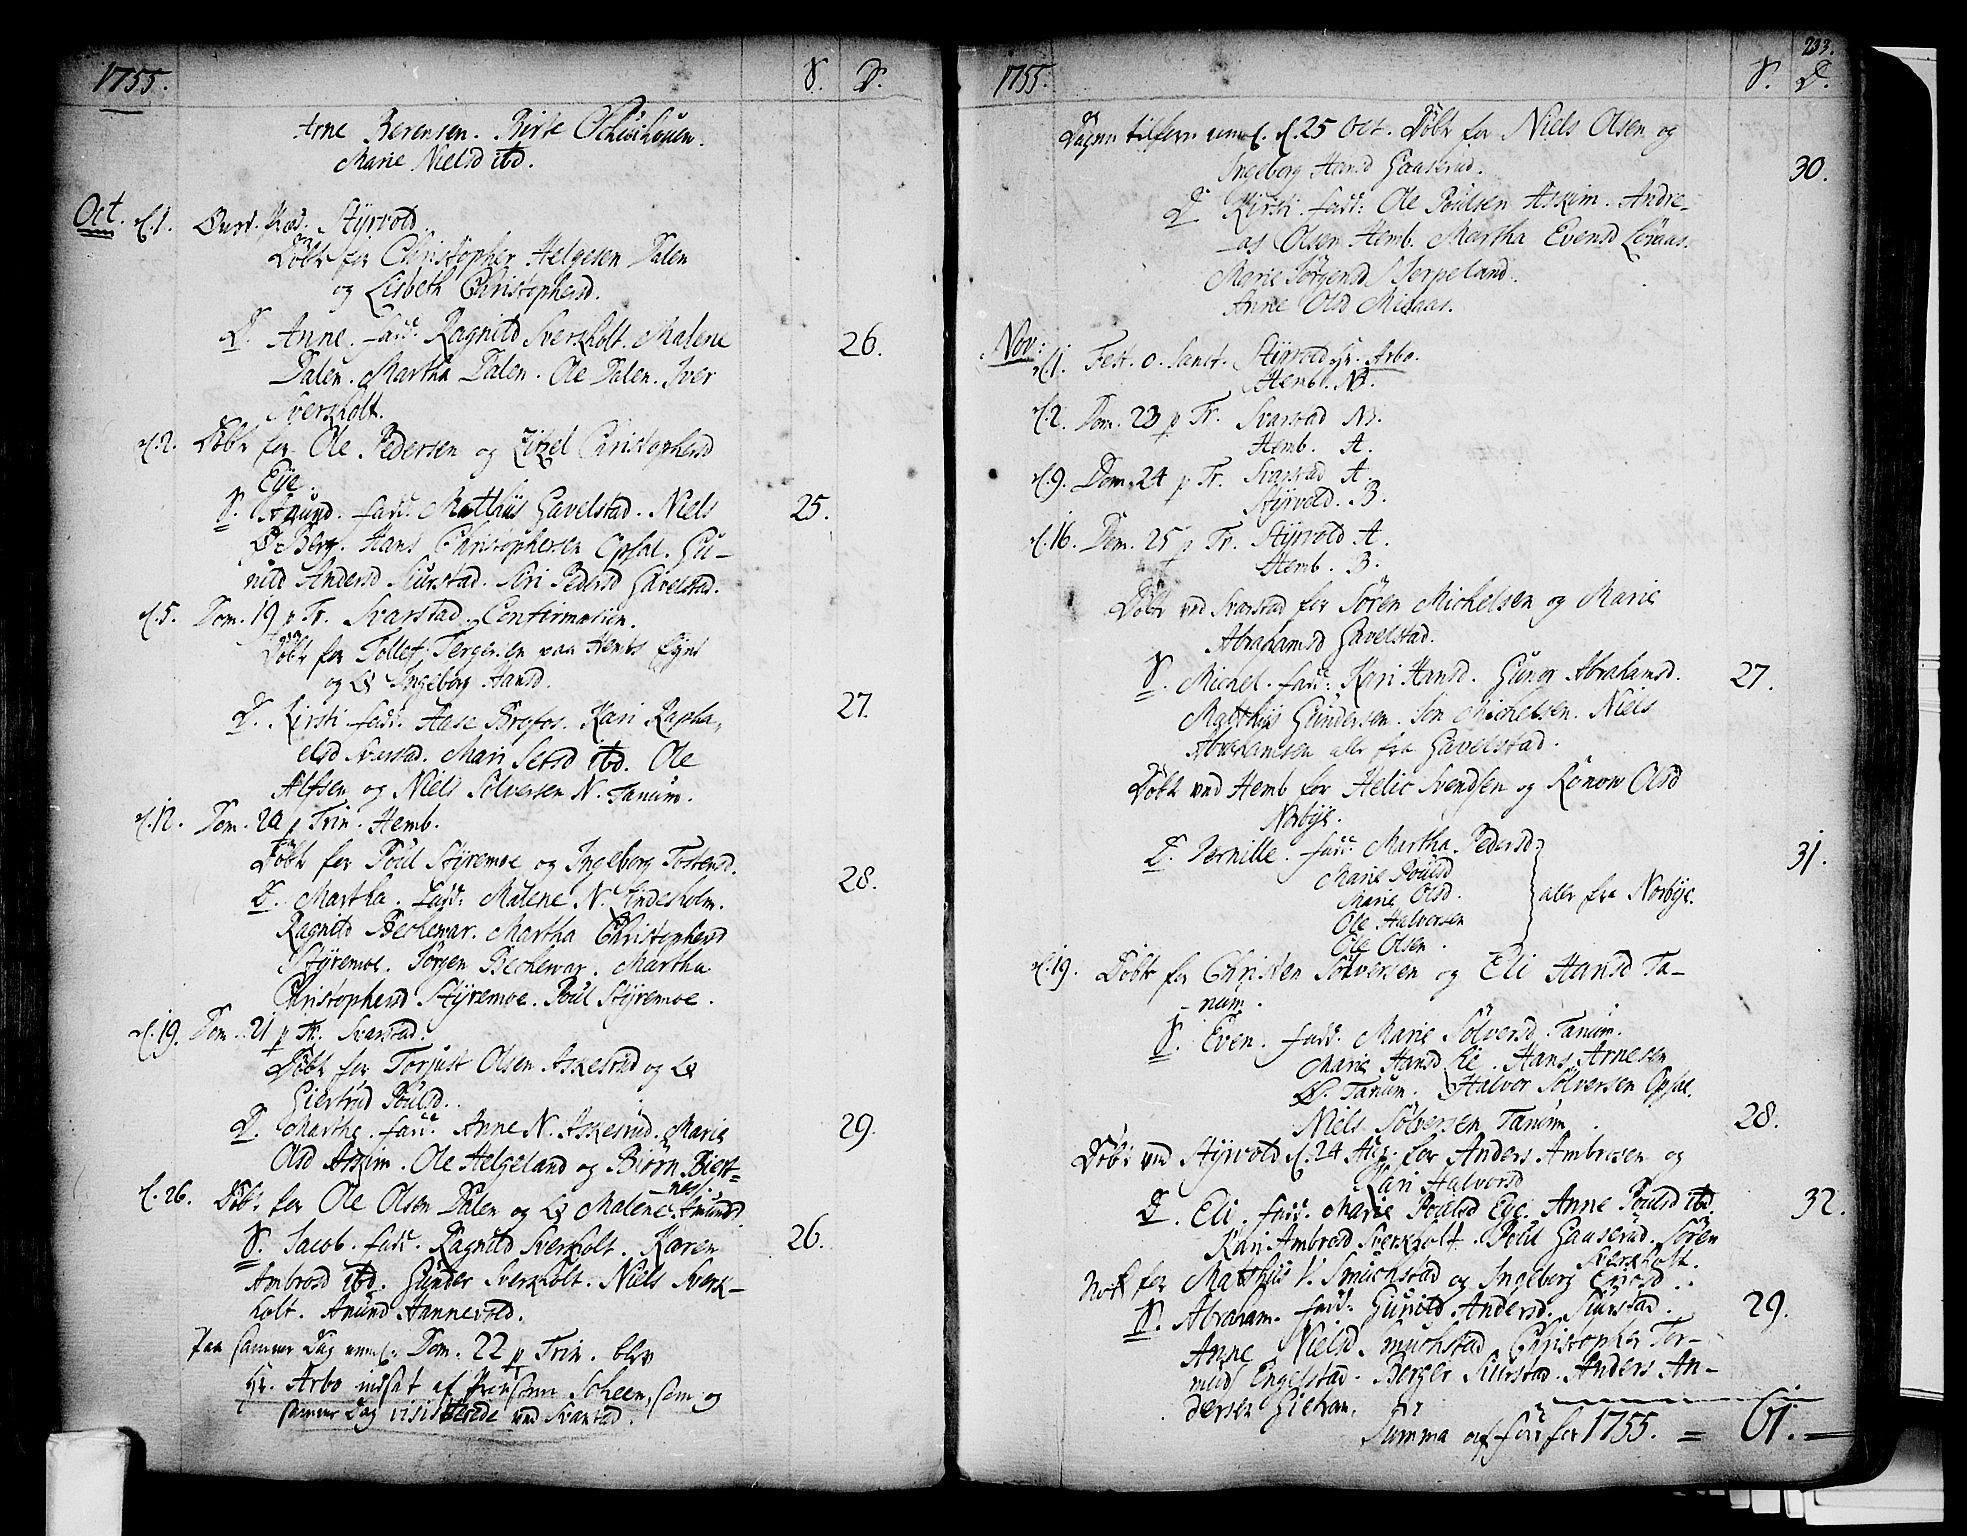 1755. S. D.
Arne Berensen. Birte
Marie Nielsd ibd.
Oct. d.1. Styrvold
Døbt for Christopher Helgesen Dalen
og Lisbeth Christophersd.
D. Anne. fadd: Ragnild Sverkholt. Malene 26.
Dalen. Martha Dalen. Ole Dalen. Iver
Sverkholt.
d.2. Døbt for Ole Pedersen og Zitzel Christophersd
Eye.
S. Amund. fadd: Matthiis Gavelstad. Niels 25.
Berg. Hans Christophersen Opsal. Gu-
nild Andersd Siurstad. Siri Pedersd Gavelstad.
d.5. Dom. 19 p Tr. Svarstad. Confirmation.
Døbt for Tollef Tergersen paa Hembs Eyet
og Ingeborg Hansd.
D. Kirsti. fadd: Aase Brofos. Kari Rapha-
elsd Sverstad. Mari ibd. Ole 27.
Alfsen og Niels Sølversen N. Tanum.
d.12. Dom. 20 p Trin. Hemb.
Døbt for Poul Styremoe og Ingeborg Tostensd.
D. Martha. Fadd: Malene N. Lindesholm. 28.
Ragnild Beckevar. Martha Christophersd
Styremoe. Jørgen Beckevar. Martha
Christophersd Styremoe. Poul Styremoe.
d.19. Dom. 21 p Tr. Svarstad.
Døbt for Torjust Olsen Askerud og
Giertrud Poulsd.
D. Marthe. fadd: Anne N. Askerud. Marie 29.
Olsd Askim. Ole Helgeland og Biørn Biert-
nes.
d.26. Døbt for Ole Olsen Dalen og Malene Amunds.
S. Jacob. fadd. Ragnild Sverkholt. Karen 26.
Ambrosd ibd. Gunder Sverkholt. Niels Sverk-
holt. Amund Hannevold.
Paa samme Dag nemlig Dom. 22 p Trin. blev
Hr. Arbo indsat af Provsten Scheen, som og
samme Dag visiterede ved Svarstad.
1755. S. D. 233.
Dagen tilforn neml. d.25 Oct. Døbt for Niels Olsen og
Ingeborg Hansd Gaaserud. 30.
D Kirsti. fadd: Ole Poulsen Askim. Andre-
as Olsen Hemb. Martha Evensd Løvaas.
Marie Jørgensd Herpeland.
Anne Olsd Midaas.
Nov: d.1. Fest. o. Sanct. Styrvold Hr. Arbo.
Hemb.
d.2. Dom. 23 p Tr. Svarstad
Hemb. A.
d.9. Dom. 24 p Tr. Svarstad A.
Styrvold. B.
d.16. Dom. 25 p Tr. Styrvold A.
Hemb. B.
Døbt ved Svarstad for Søren Michelsen og Marie
Abrahamsd Gavelstad.
S. Michel. fadd: Kari Hansd. Gunor Abrahamsd. 27.
Matthiis Gundersen. Michelsen. Niels
Abrahamsen alle fra Gavelstad.
Døbt ved Hemb for Helie Svendsen og Rønow Olsd
Norbye.
D. Pernille. fadd: Martha. Pedersd 31.
Marie Poulsd
Marie Olsd. alle fra Norbye.
Ole Halversen
Ole Olsen.
d.19. Døbt for Christen Sølversen og Eli Hansd Ta-
num.
S. Even. fadd: Marie Sølversd. Tanum.
Marie Hansd Hans Arnesen
Tanum. Halvor Sølversen Opsal.
Niels Sølversen Tanum. 28.
Døbt ved Styrvold d.24 Aug. for Anders Ambrosen og
Kari Halvorsd
D. Eli. fadd: Marie Poulsd Eye. Anne Poulsd ibd. 32.
Kari Ambrosd Sverkholt. Poul Gaaserud. Søren
Sverkholt.
Nok for Matthiis V. Smuchstad og Ingeborg
S. Abraham. fadd: Gunild Andersd. Siurstad. 29.
Anne Nielsd. Smuchstad Christopher Tor-
mud Engelstad. Berger Siurstad. Anders An-
dersen
Summa for 1755. = 61.